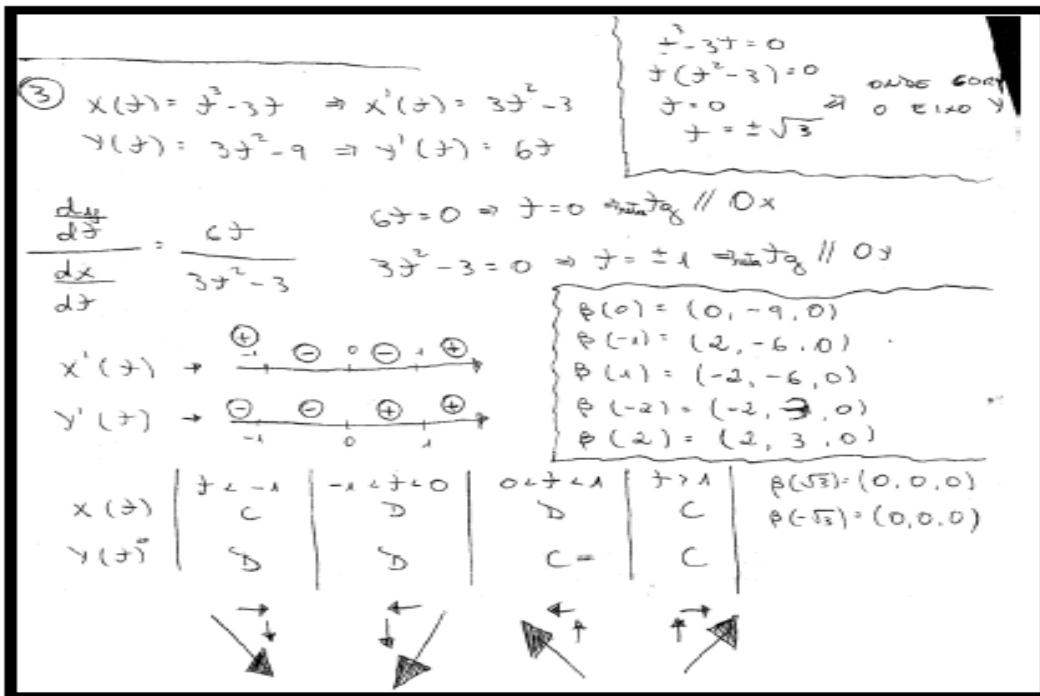 t³ - 3t = 0
t(t² - 3) = 0
t = 0
t = ±√3
⇒ ONDE
O EIXO Y
③ X(t) = t³ - 3t ⇒ X'(t) = 3t² - 3
Y(t) = 3t² - 9 ⇒ Y'(t) = 6t
dy/dt / dx/dt = 6t / 3t² - 3
6t = 0 ⇒ t = 0 ⇒ reta tg // Ox
3t² - 3 = 0 ⇒ t = ±1 ⇒ reta tg // Oy
β(0) = (0, -9, 0)
β(-1) = (2, -6, 0)
β(1) = (-2, -6, 0)
β(-2) = (-2, 3, 0)
β(2) = (2, 3, 0)
X'(t) → ⊕ -1 ⊖ 0 ⊖ 1 ⊕
Y'(t) → ⊖ ⊖ ⊕ ⊕
-1 0 1
t < -1 | -1 < t < 0 | 0 < t < 1 | t > 1
X(t) | C | D | D | C
Y(t) | D | D | C = | C
β(√3) = (0, 0, 0)
β(-√3) = (0, 0, 0)